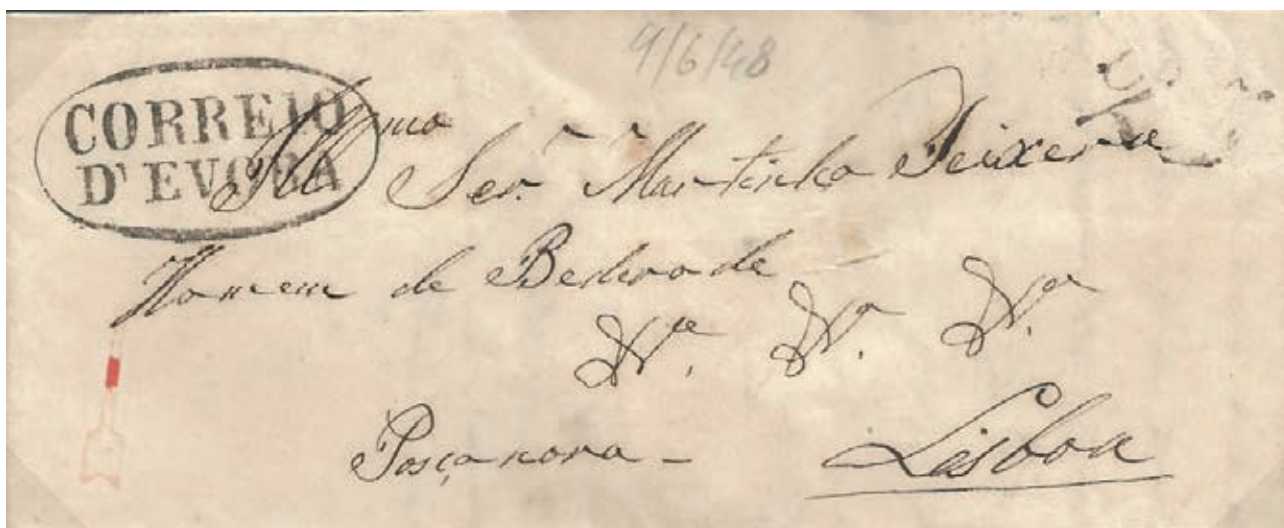 9/6/48
CORREIO
D'EVORA
Illmo Ser. Martinho Teixera
Homem de Bederode
Nª. Nª. Nª.
Posçanova - Lisboa